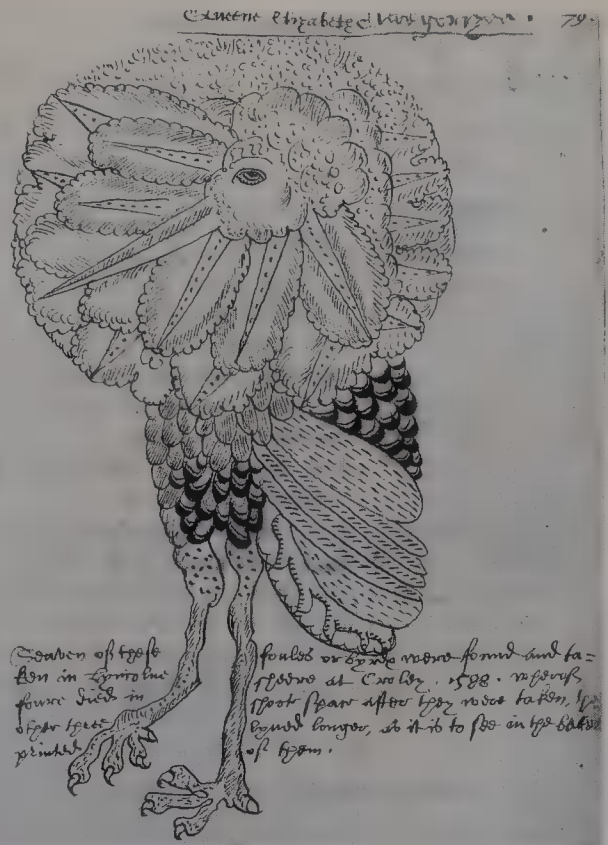 Queene Elizabethe 79.
Seaven of these foules or byrds were found and ta=
ken in Lyncolne sheere at Croley. 1588. wherof
foure died in short space after they were taken, the
other three lyved longer, as it is to see in the
printed of them.